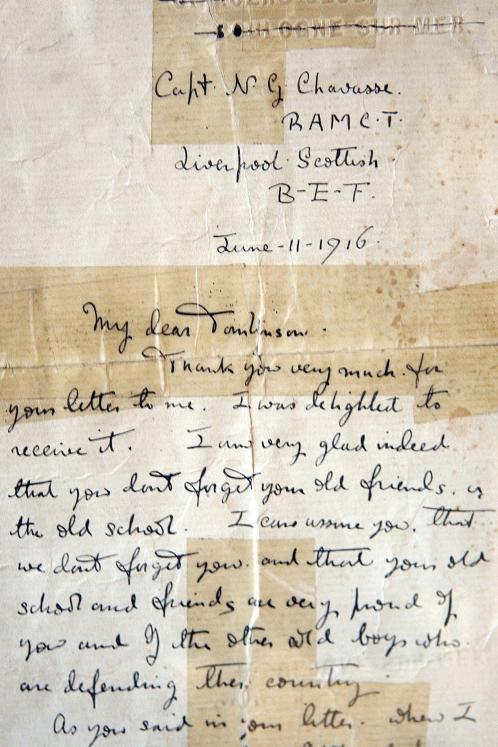 BOULOGNE-SUR-MER.
Capt. N G Chavasse.
RAMC.T.
Liverpool Scottish
B-E-F.
June-11-1916.
My dear Tomlinson.
Thank you very much for
your letter to me. I was delighted to
receive it. I am very glad indeed
that you dont forget your old friends, or
the old school. I can assure you, that
we dont forget you. and that your old
school and friends are very proud of
you and of the other old boys who
are defending their country.
As you said in your letter. when I